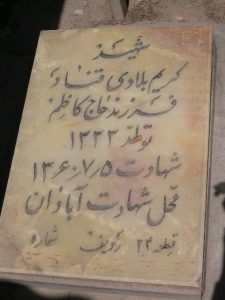 شهید
کریم بلادی قناد
فرزند حاج کاظم
تولد ۱۳۳۳
شهادت ۱۳۶۰٫۷٫۵
محل شهادت آبادان
قطعه ۲۴ ردیف شماره